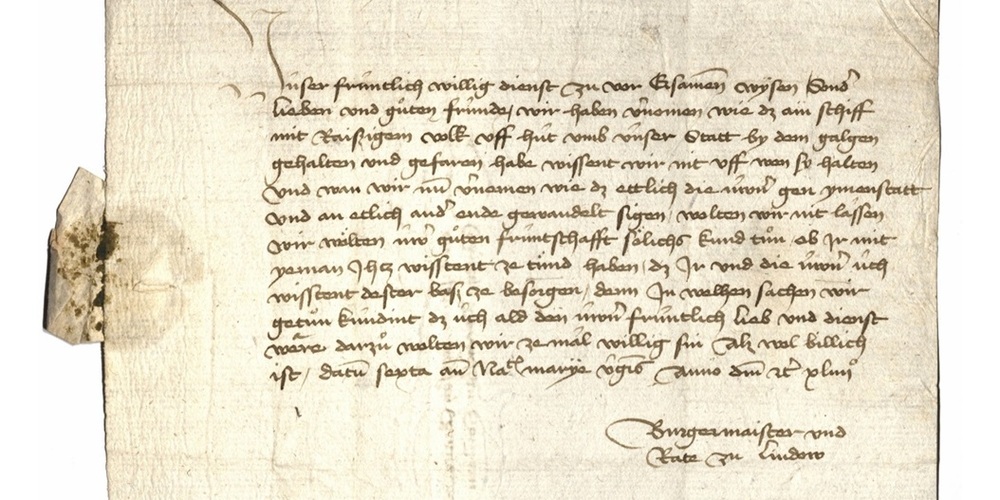 Unser fruntlich willig dienst zu vor Ersamen wysen Sond'
lieben und gůten frunde, wir haben v'nomen wie dz ain schiff
mit Raisigem volk uff hut umb unser Statt by dem galgen
gehalten und gefaren habe wissent wir nit uff wen sy halten
und wan wir nu v'nomen wie dz ettlich die uwn' gen ymenstatt
und an etlich and' ende gewandelt sigen, wolten wir nit lassen
wir wölten uw' gůten fruntschafft sölichs kund tůn, ob Ir mit
yeman wisstent ze tůnd haben, dz Ir und die uwn' uch
wisstent dester bas ze besorgen, denn In welhen sachen wir
getun kundint dz uch ald den uwn' fruntlich lieb und dienst
wäre darzů wolten wir ze mal willig sin Alz wol billich
ist, datu sexta an Nat marije v'gis Anno dm xliiij
Burgermaister und
Rate zu Lindow